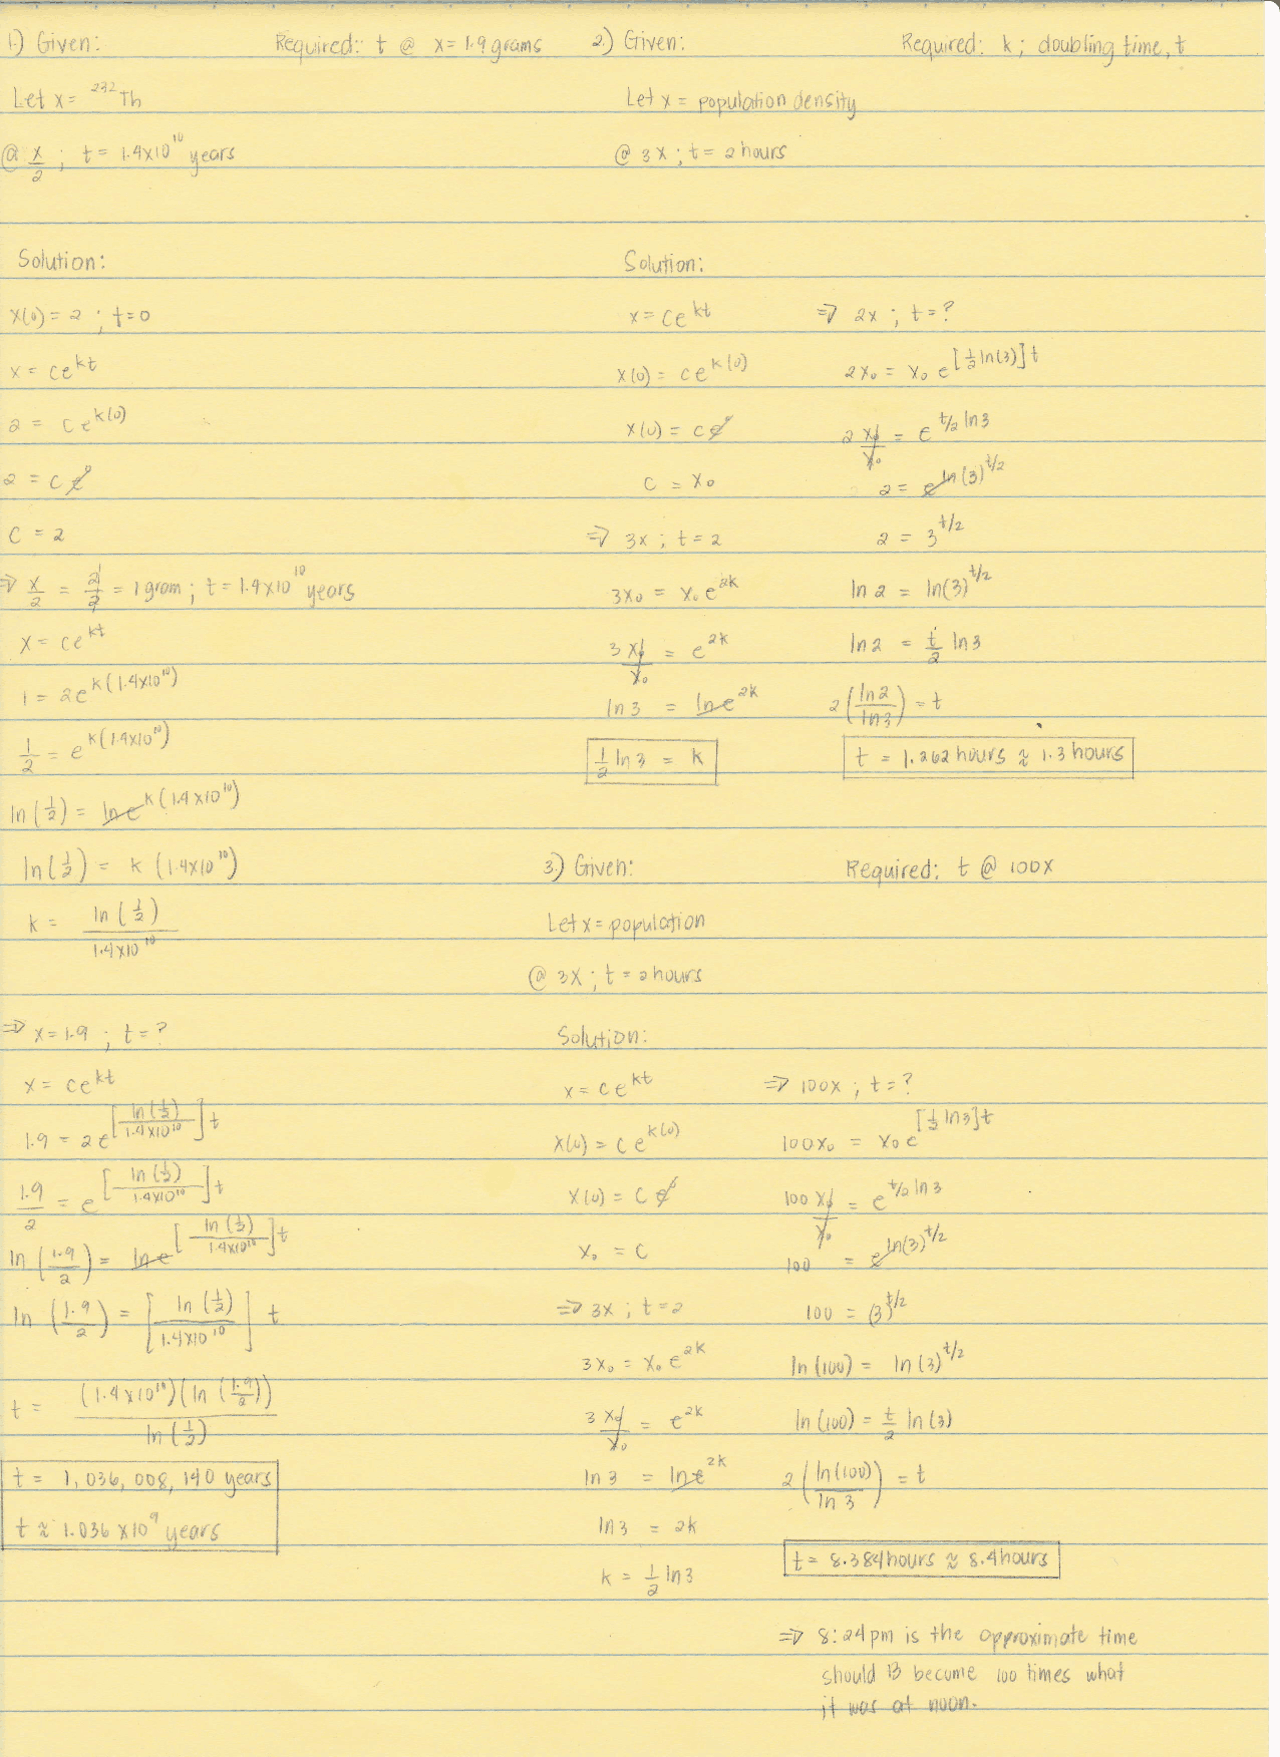 1.) Given: Required: t @ x = 1.9 grams
Let x = ²³²Th
@ x/2 ; t = 1.4x10¹⁰ years
Solution:
x(0) = 2 ; t=0
x = ce^kt
2 = ce^k(0)
2 = c e⁰
C = 2
⇒ x/2 = 2/2 = 1 gram ; t = 1.4x10¹⁰ years
x = ce^kt
1 = 2e^k(1.4x10¹⁰)
1/2 = e^k(1.4x10¹⁰)
ln(1/2) = ln e^k(1.4x10¹⁰)
ln(1/2) = k (1.4x10¹⁰)
k = ln(1/2) / 1.4x10¹⁰
⇒ x = 1.9 ; t = ?
x = ce^kt
1.9 = 2e^[ln(1/2)/1.4x10¹⁰]t
1.9/2 = e^[ln(1/2)/1.4x10¹⁰]t
ln(1.9/2) = ln e^[ln(1/2)/1.4x10¹⁰]t
ln(1.9/2) = [ln(1/2)/1.4x10¹⁰] t
t = (1.4x10¹⁰)(ln(1.9/2)) / ln(1/2)
t = 1,036,008,140 years
t ≈ 1.036 x10⁹ years
2.) Given: Required: k ; doubling time, t
Let x = population density
@ 3x ; t = 2 hours
Solution:
x = ce^kt
x(0) = ce^k(0)
x(0) = ce⁰
C = x₀
⇒ 3x ; t = 2
3x₀ = x₀e^2k
3x₀/x₀ = e^2k
ln 3 = ln e^2k
1/2 ln 3 = k
⇒ 2x ; t = ?
2x₀ = x₀ e^[1/2 ln(3)]t
2x₀/x₀ = e^t/2 ln 3
2 = e^ln(3)^t/2
2 = 3^t/2
ln 2 = ln(3)^t/2
ln 2 = t/2 ln 3
2(ln 2/ln 3) = t
t = 1.262 hours ≈ 1.3 hours
3.) Given: Required: t @ 100x
Let x = population
@ 3x ; t = 2 hours
Solution:
x = ce^kt
x(0) = ce^k(0)
x(0) = C e⁰
x₀ = C
⇒ 3x ; t = 2
3x₀ = x₀ e^2k
3x₀/x₀ = e^2k
ln 3 = ln e^2k
ln 3 = 2k
k = 1/2 ln 3
⇒ 100x ; t = ?
100x₀ = x₀ e^[1/2 ln 3]t
100x₀/x₀ = e^t/2 ln 3
100 = e^ln(3)^t/2
100 = (3)^t/2
ln(100) = ln(3)^t/2
ln(100) = t/2 ln(3)
2(ln(100)/ln 3) = t
t = 8.384 hours ≈ 8.4 hours
⇒ 8:24 pm is the approximate time
should B become 100 times what
it was at noon.